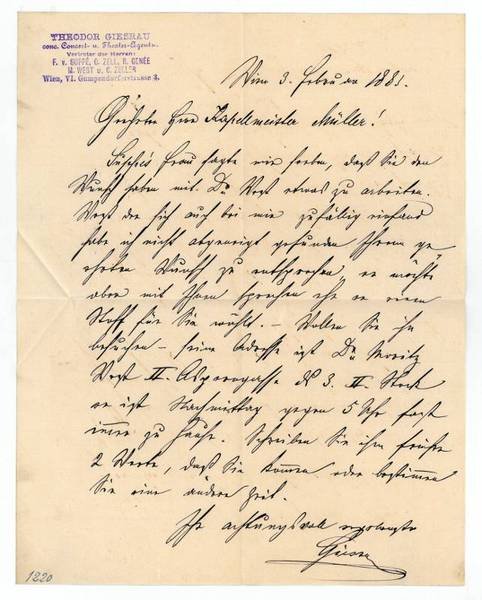 THEODOR GIESRAU
conc. Concert- u. Theater-Agentur.
Vertreter der Herren:
F. v. SUPPÉ, C. ZELL, R. GENÉE
M. WEST u. C. ZELLER
Wien, VI. Gumpendorferstrasse 3.
Wien 3. Februar 188
Geehrter Herr Kapellmeister Müller!
Suppé's Frau sagte mir soeben, daß Sie den
Wunsch haben mit Dr West etwas zu arbeiten.
West der sich auch bei mir zufällig einfand
habe ich nicht abgeneigt gefunden Ihrem ge„
ehrten Wunsch zu entsprechen, er möchte
aber mit Ihnen sprechen ehe er einen
Stoff für Sie wählt. – Wollen Sie ihn
besuchen – seine Adresse ist Dr. Moritz
West II. Asperngasse 3. II. Stock
er ist Nachmittag gegen 5 Uhr fast
immer zu Hause. Schreiben Sie ihm früher
2 Worte, daß Sie kommen oder bestimmen
Sie eine andere Zeit.
Ihr achtungsvoll ergebenster
1220